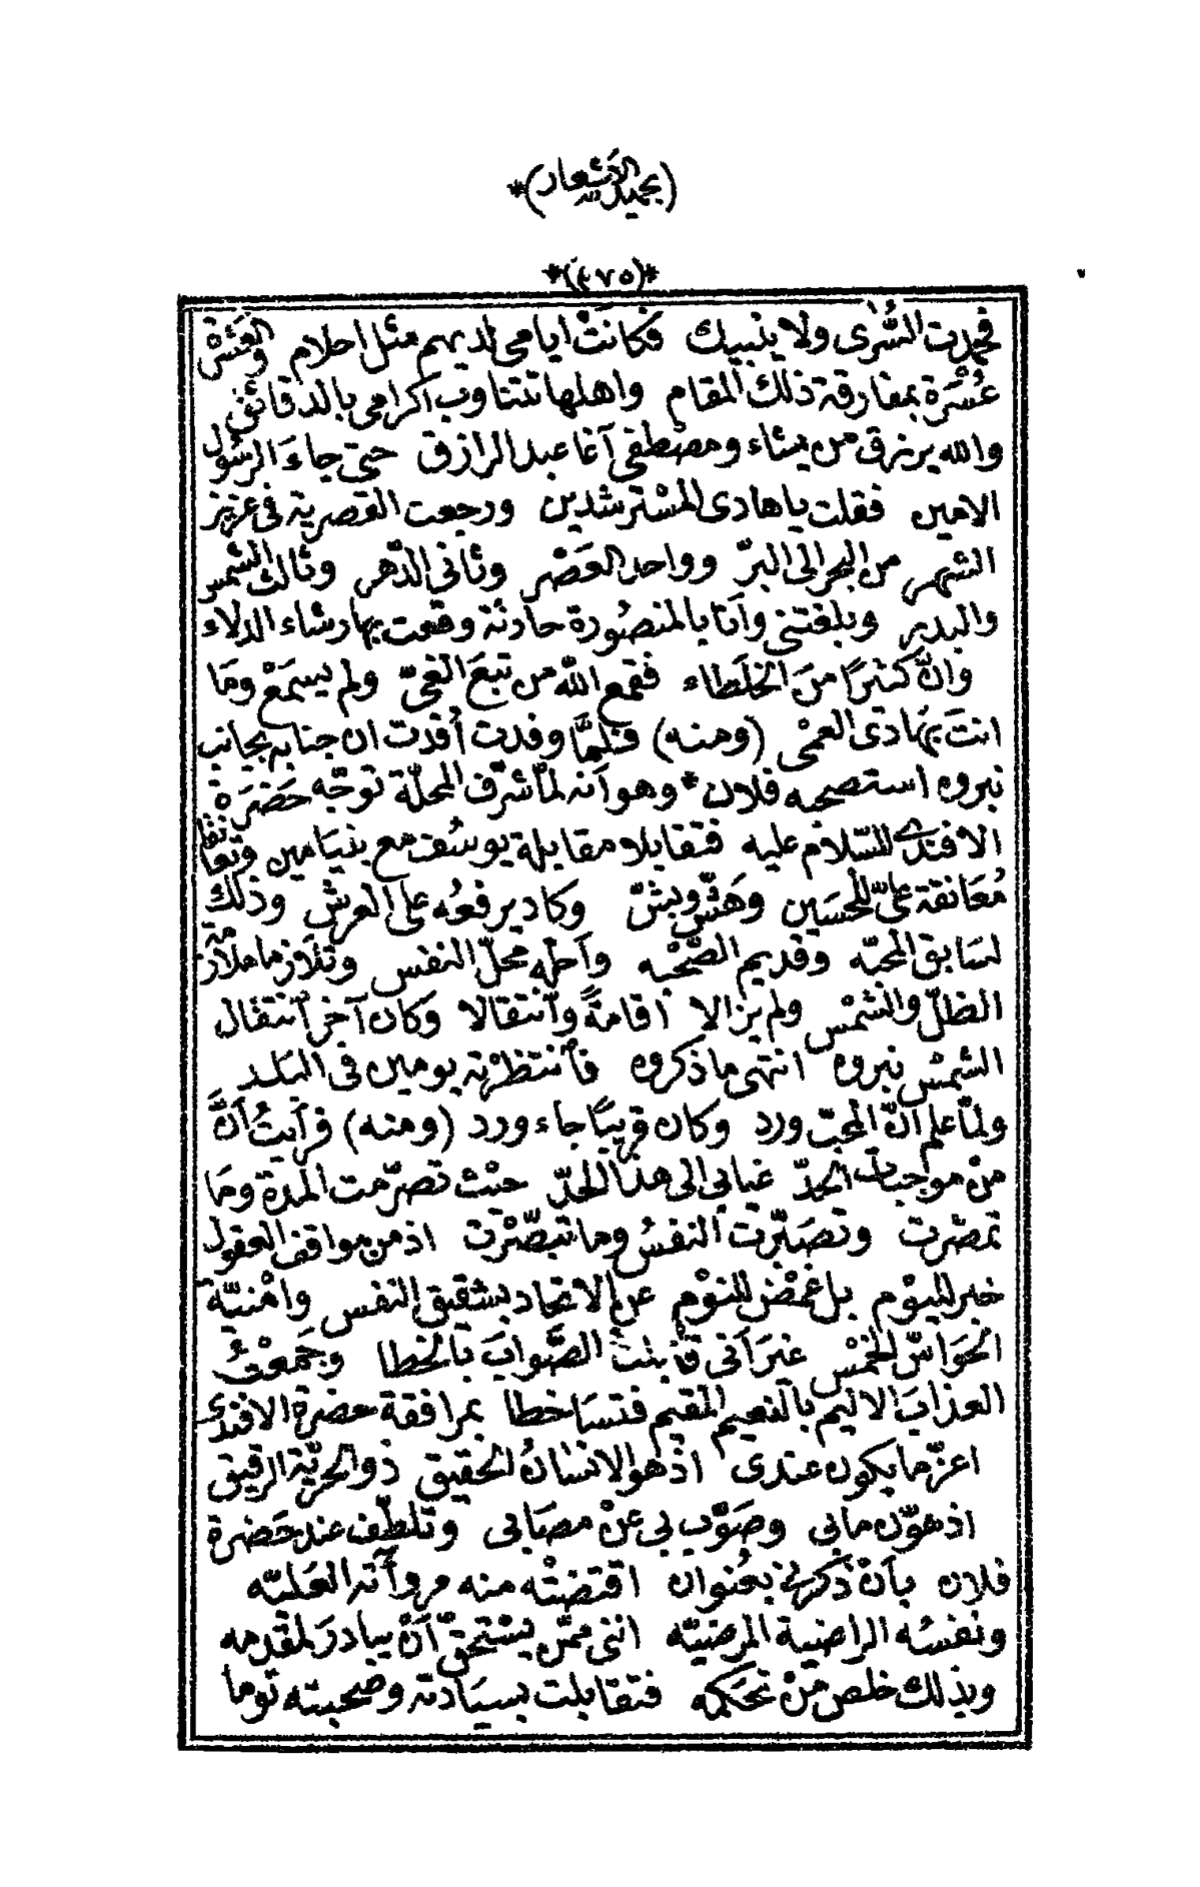 (بحميد الأشعار)*
*(٤٧٥)*
فحمدت السُّرى ولا ينبيك فكانت ايامى لديهم مثل احلام والعَشْر
عُسْرَة بمفارقة ذلك المقام واهلها تتناوب اكرامى بالدقائق
والله يرزق من يشاء ومصطفى آغا عبد الرازق حتى جاءَ الرسُول
الامين فقلت ياهادى المسْترشدين ورجعت القصرية فى عزيز
الشهر من البحر الى البرّ وواحد العَصْر وثانى الدّهر وثالث الشمس
والبدر وبلغتنى وأنا بالمنصُورة حادثة وقعت بها رشاء الدلاء
وانّ كثيرًا منَ الخلَطاء فقمع الله من تبعَ الغىّ ولم يسمَعْ ومَا
انتَ بهَادى العمْى (ومنه) فلمَّا وفدت أُفدت ان جنابه بجانب
نبروه استصحبه فلان * وهو أنه لمّا شرّف المحلّة توجّه حضرَة
الافندى للسّلام عليه فتقابلا مقابلة يوسُف مع بنيَامين وتعَانقا
مُعَانقة علىّ للحُسَين وهَشّ وبشّ وكاد يرفعُه على العرش وذلك
لسَابق المحبّه وقديم الصّحْبه وأحله محلّ النفس وتلازما ملازمة
الظلّ والشمْس ولم يزالا اقامةً وانتقالا وكان آخر انتقال
الشمْس نبروه انتهى ماذكروه فانتظرته يومين فى البَلد
ولمّا علم انّ المحبّ ورد وكان قريبًا جاء ورد (ومنه) فرأيتُ أنَّ
منْ موجبات الجدّ غيابى الى هذا الحدّ حيْث تصرّمت المدة ومَا
تمصّرت وتصَبّرت النفسُ وما تبصّرْت اذ من مواقف العقول
خبر لليوْم بل غمْض للنوْم عن الاتحاد بشقيق النفس وامْنيّة
الحَوَاسّ الخمْس غيرَ أنى قابلتُ الصَّوابَ بالخطا وجَمعْتُ
العذابَ الاليم بالنعيم المقيم فتسَاخطا بمرافقة حضرة الافندى
اعزّ ما يكون عندى اذ هو الانسَانُ الحقيق ذو الحريّة الرقيق
اذ هوّن مابى وصَوّب بى عنْ مصَابى وتلطّف عند حَضرة
فلان بأنْ ذكرنى بعُنوان اقتضتْه منه مروأته العَليّه
ونفسُه الراضية المرضيّه اننى ممّن يسْتحقّ أنْ يبادرَ لمقدمه
وبذلك خلص منْ تحَكمه فتقابلت بسيَادته وصحبته توما